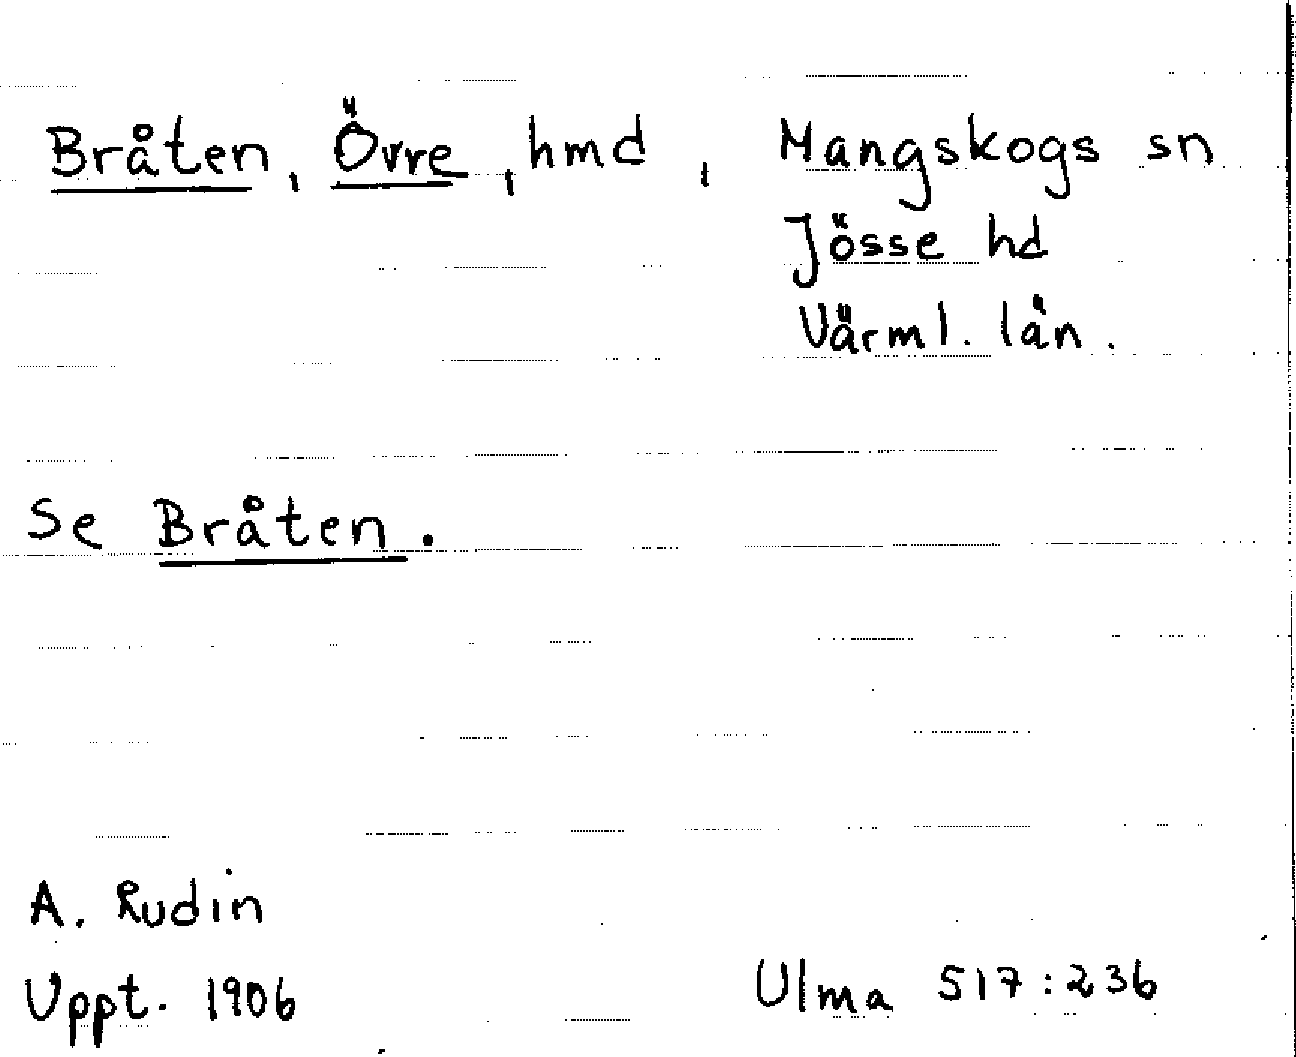 Bråten, Övre, hmd, Mangskogs sn
Jösse hd
Värml. län.
Se Bråten.
A. Rudin
Uppt. 1906
Ulma 517:236